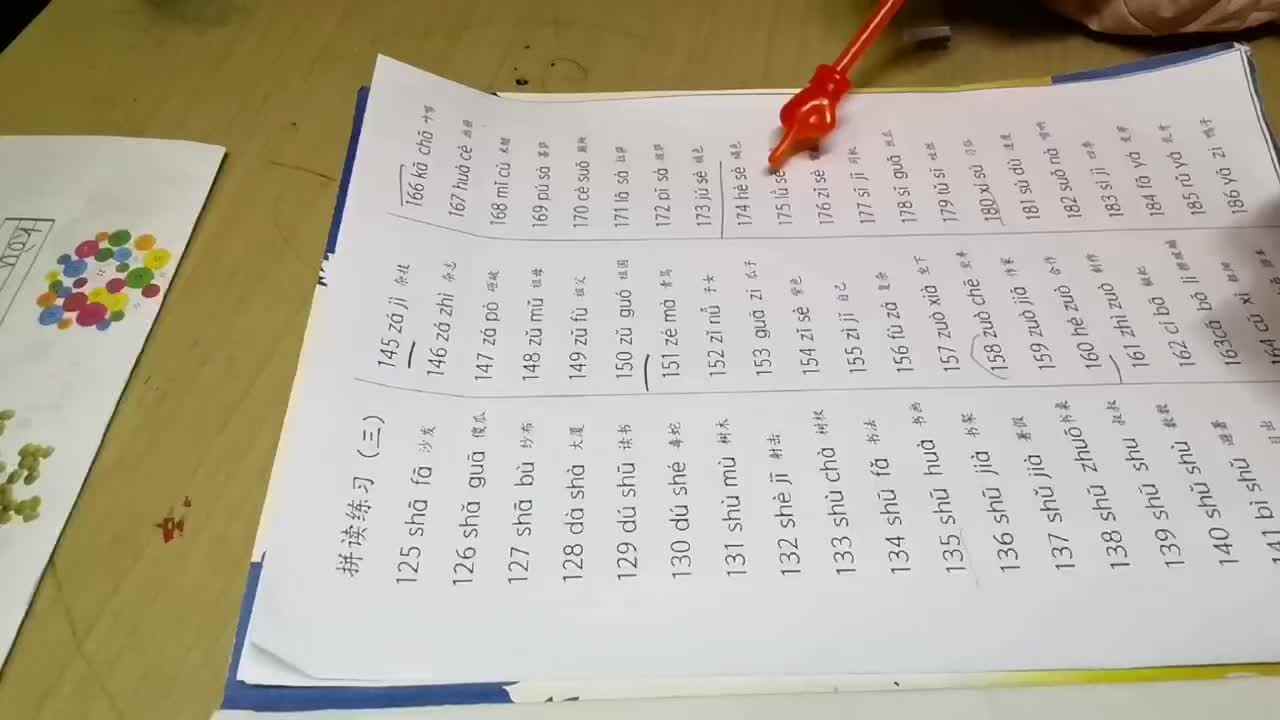 拼读练习（三）
125 shā fā 沙发
126 shǎ guā 傻瓜
127 shā bù 纱布
128 dà shà 大厦
129 dú shū 读书
130 dú shé 毒蛇
131 shù mù 树木
132 shè jī 射击
133 shù chà 树杈
134 shū fǎ 书法
135 shū huà 书画
136 shū jià 书架
137 shǔ jià 暑假
138 shū zhuō 书桌
139 shū shu 叔叔
140 shǔ shù
141 bì shǔ 避暑
145 zá jì 杂技
146 zá zhì 杂志
147 zá pò 砸破
148 zǔ mǔ 祖母
149 zǔ fù 祖父
150 zǔ guó 祖国
151 zé mà 责骂
152 zǐ nǚ 子女
153 guā zǐ 瓜子
154 zǐ sè 紫色
155 zì jǐ 自己
156 fù zá 复杂
157 zuò xià 坐下
158 zuò chē 坐车
159 zuò jiā 作家
160 hé zuò 合作
161 zhì zuò 制作
162 cí bā 糍粑
163 cā bō li 擦玻璃
164 cū xì 粗细
166 kā chā 咔嚓
167 huà cè 画册
168 mǐ cù 米醋
169 pú sà 菩萨
170 cè suǒ 厕所
171 lā sà
172 pī sà
173 jú sè 橘色
174 hè sè 褐色
175 lǜ sè
176 zǐ sè
177 sī jī 司机
178 sī guā 丝瓜
179 tǔ sī 吐丝
180 xí sú 习俗
181 sù dù 速度
182 suǒ nà 唢呐
183 sì jì 四季
184 fā yá 发芽
185 rǔ yá 乳牙
186 yā zi 鸭子